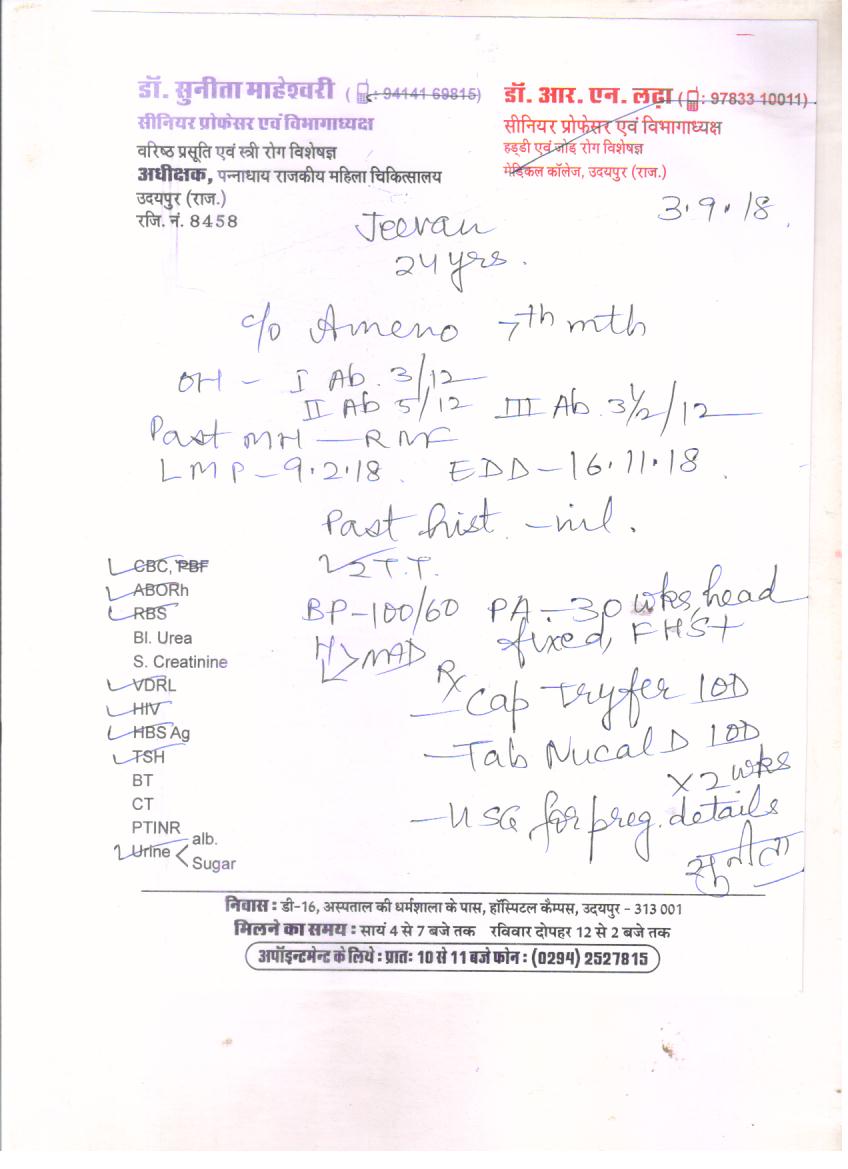 डॉ. सुनीता माहेश्वरी ( : 94141 69815)
सीनियर प्रोफेसर एवं विभागाध्यक्ष
वरिष्ठ प्रसूति एवं स्त्री रोग विशेषज्ञ
अधीक्षक, पन्नाधाय राजकीय महिला चिकित्सालय
उदयपुर (राज.)
रजि. नं. 8458
डॉ. आर. एन. लढ़ा ( : 97833 10011)
सीनियर प्रोफेसर एवं विभागाध्यक्ष
हड्डी एवं जोड़ रोग विशेषज्ञ
मेडिकल कॉलेज, उदयपुर (राज.)
3.9.18
Jeevan
24 yrs.
c/o Ameno 7th mth
OH - I Ab. 3/12
II Ab 5/12 III Ab. 3½/12
Past MH - RMF
LMP - 9.2.18. EDD - 16.11.18
Past hist. - nil.
2 T.T.
BP - 100/60 PA - 30 wks, head
fixed, FHS+
H L > NAD
Rx
- Cap Tryfer 1OD
- Tab Nucal D 1OD
x 2 wks
- USG for preg. details
सुनीता
CBC, PBF
ABORh
RBS
Bl. Urea
S. Creatinine
VDRL
HIV
HBS Ag
TSH
BT
CT
PTINR
Urine < alb.
Sugar
निवास : डी-16, अस्पताल की धर्मशाला के पास, हॉस्पिटल कैम्पस, उदयपुर - 313 001
मिलने का समय : सायं 4 से 7 बजे तक रविवार दोपहर 12 से 2 बजे तक
अपॉइन्टमेन्ट के लिये : प्रातः 10 से 11 बजे फोन : (0294) 2527815